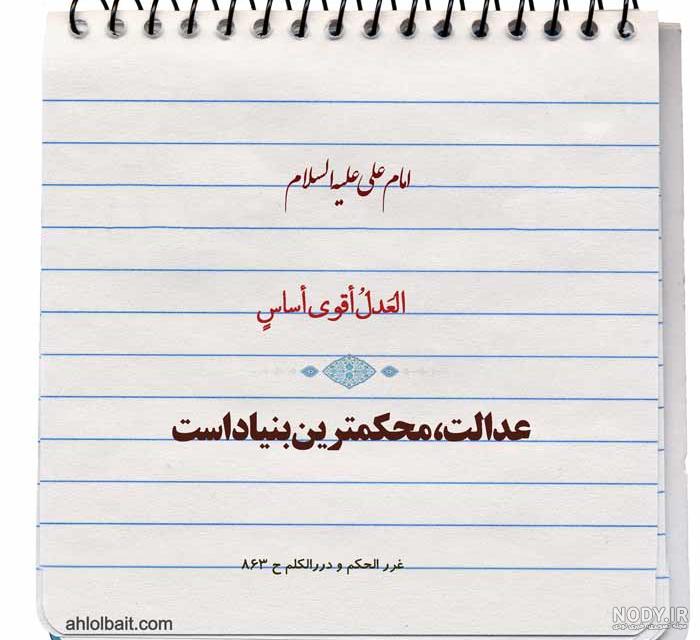 امام علی علیه السلام
العَدلُ أقوی أساسٍ
عدالت، محکمترین بنیاد است
غرر الحکم و دررالکلم ح ۸۶۳
ahlolbait.com
NODY.IR